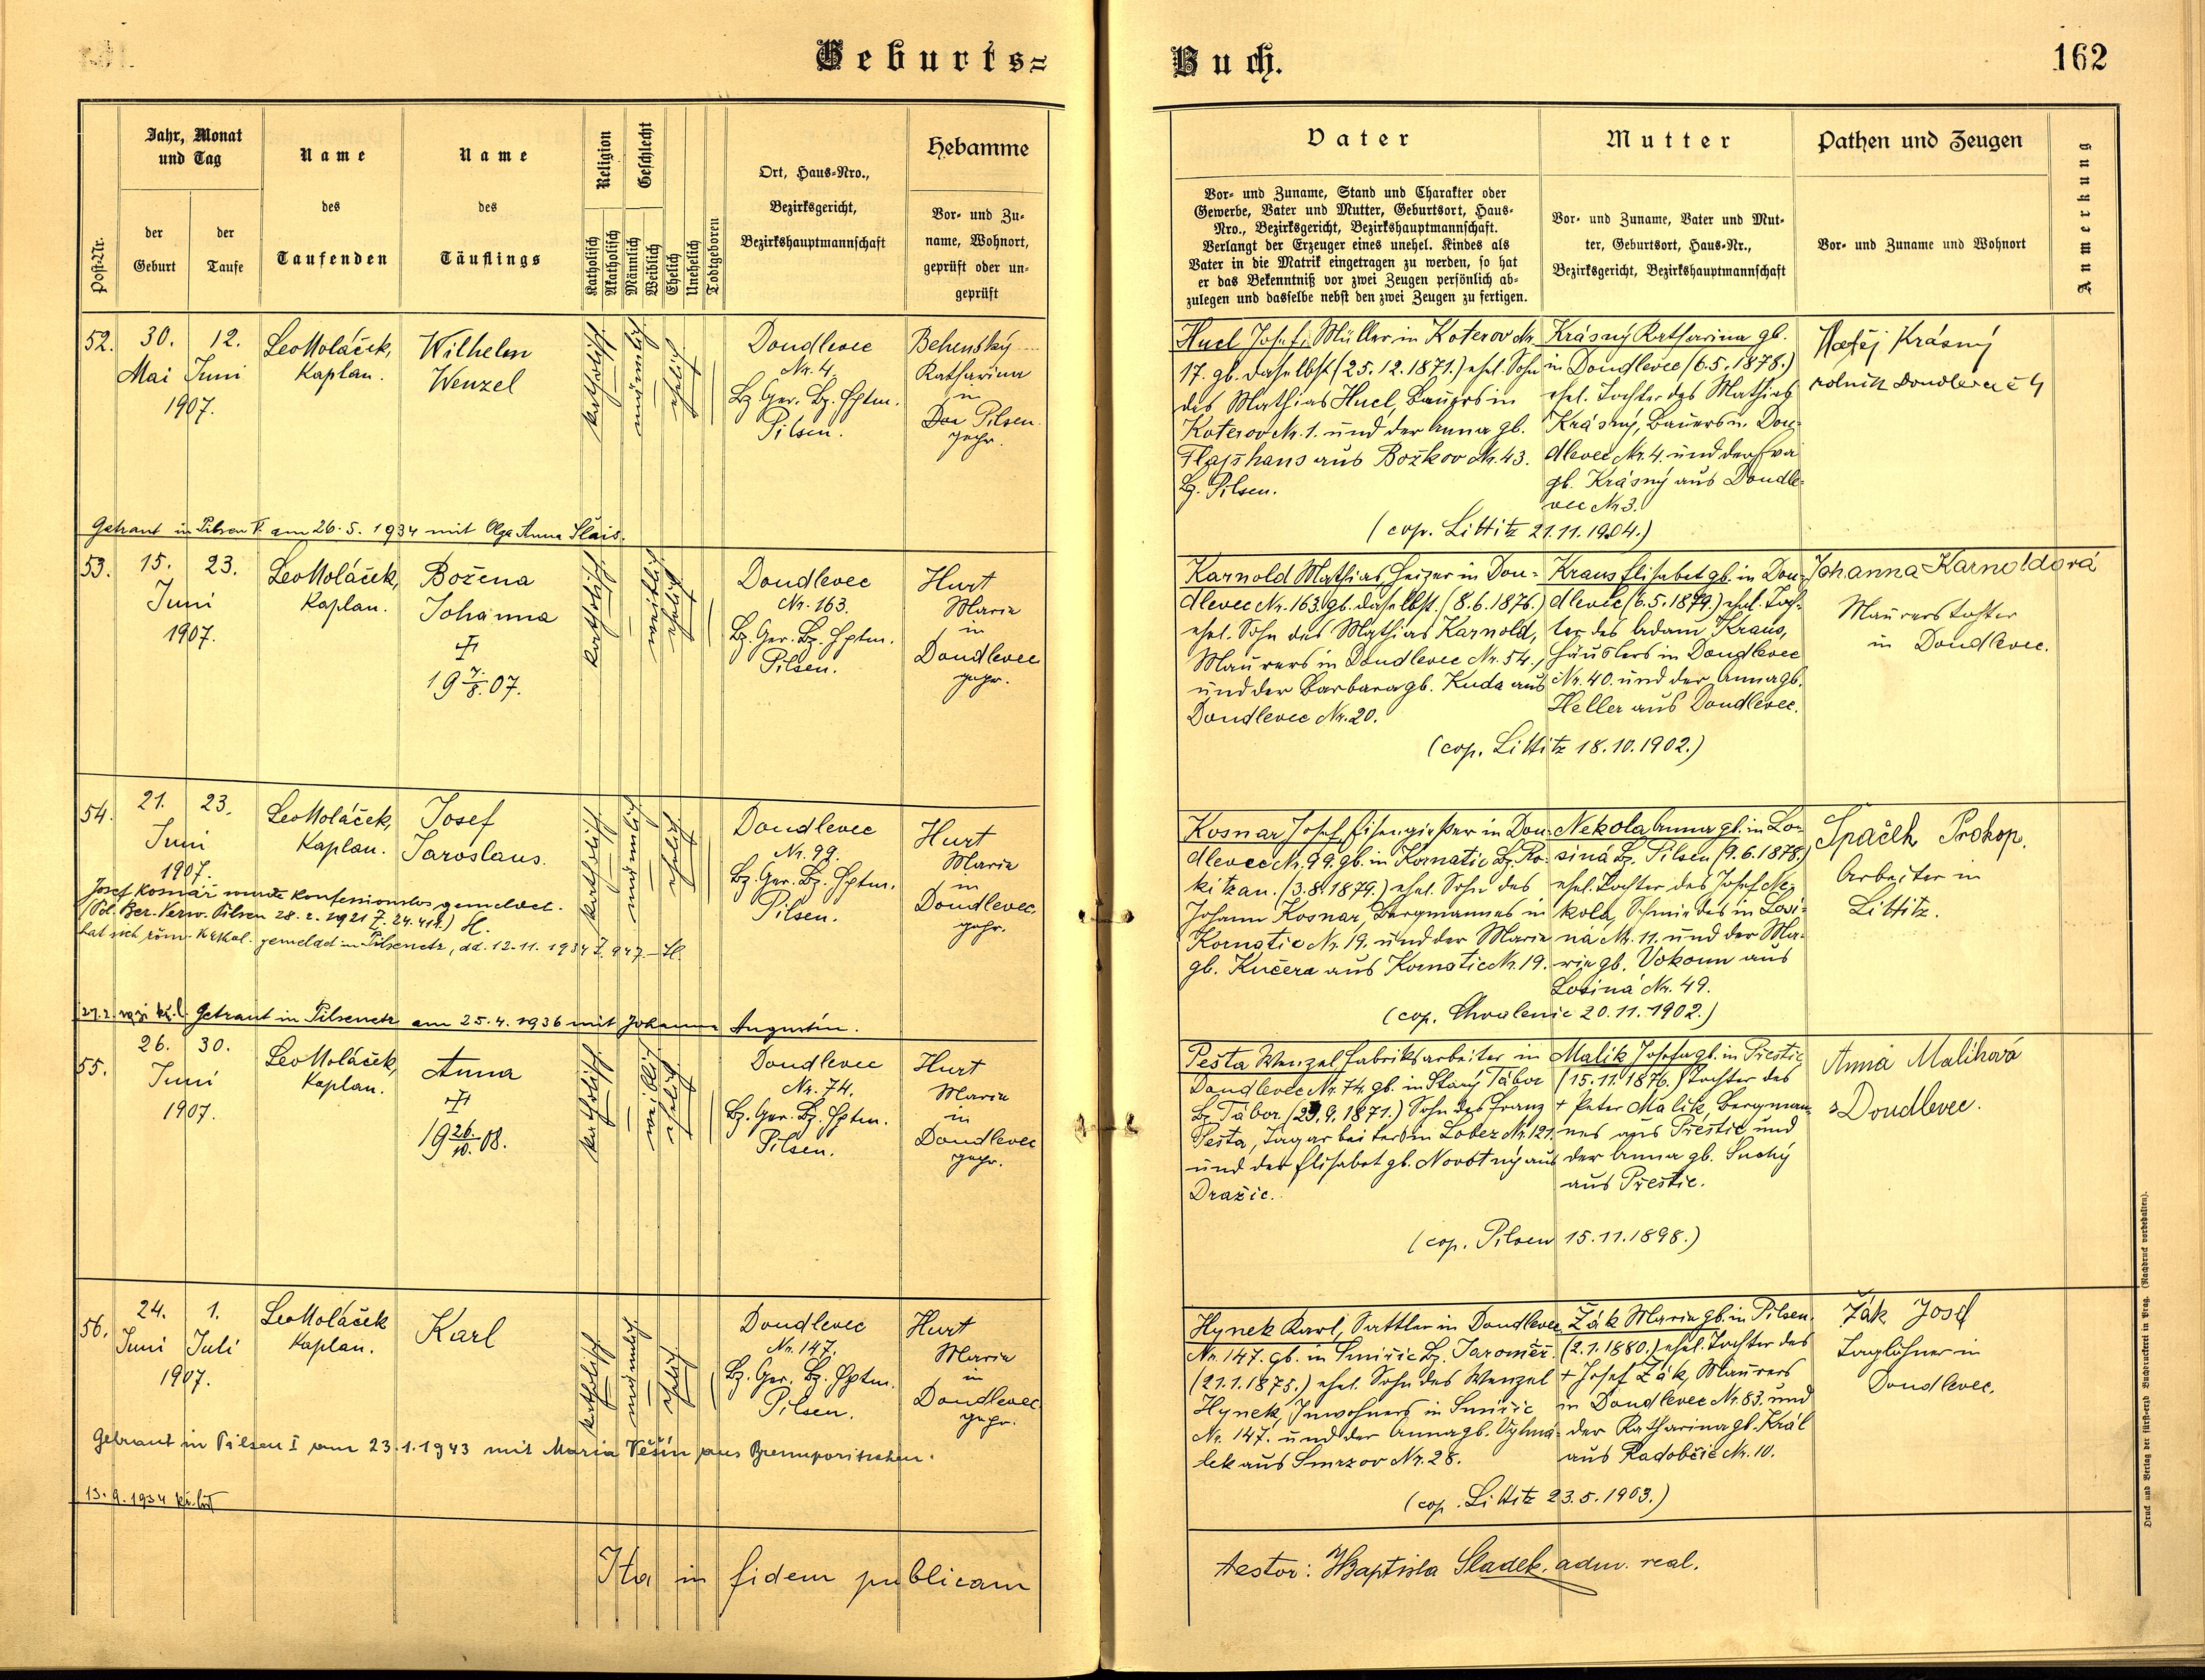 Geburts=
Buch.
162
Post-Nr.
Jahr, Monat
und Tag
der
Geburt
der
Taufe
Name
des
Taufenden
Name
des
Täuflings
Religion
Katholisch
Akatholisch
Geschlecht
Männlich
Weiblich
Ehelich
Unehelich
Todtgeboren
Ort, Haus-Nro.,
Bezirksgericht,
Bezirkshauptmannschaft
Hebamme
Vor- und Zu-
name, Wohnort,
geprüft oder un-
geprüft
Vater
Vor- und Zuname, Stand und Charakter oder
Gewerbe, Vater und Mutter, Geburtsort, Haus-
Nro., Bezirksgericht, Bezirkshauptmannschaft.
Verlangt der Erzeuger eines unehel. Kindes als
Vater in die Matrik eingetragen zu werden, so hat
er das Bekenntniß vor zwei Zeugen persönlich ab-
zulegen und dasselbe nebst den zwei Zeugen zu fertigen.
Mutter
Vor- und Zuname, Vater und Mut-
ter, Geburtsort, Haus-Nr.,
Bezirksgericht, Bezirkshauptmannschaft
Pathen und Zeugen
Vor- und Zuname und Wohnort
Anmerkung
52.
30.
Mai
12.
Juni
1907.
Leo Moláček,
Kaplan.
Wilhelm
Wenzel
katholisch
männlich
ehelich
Doudlevec
Nr. 4.
Bz. Ger. Bz. Hptm.
Pilsen.
Behenský
Katharina
in
Pilsen.
gepr.
Huel Josef, Müller in Koterov Nr.
17. gb. daselbst (25.12.1871.) ehel. Sohn
des Mathias Huel, Bauers in
Koterov Nr. 1. und der Anna gb.
Flajšhans aus Božkov Nr. 43.
Bz. Pilsen.
Krásný Katharina gb.
in Doudlevec (6.5.1878.)
ehel. Tochter des Mathias
Krásný, Bauers in Dou-
dlevec Nr. 4. und der Eva
gb. Krásný aus Doudle-
vec Nr. 3.
(cop. Littitz 21.11.1904.)
Matěj Krásný
rolník Doudlevec č 4
Getraut in Pilsen V. am 26.5.1934 mit Olga Anna Šlais.
53.
15.
23.
Juni
1907.
Leo Moláček,
Kaplan.
Božena
Johanna
✝
19 7./8. 07.
katholisch
weiblich
ehelich
Doudlevec
Nr. 163.
Bz. Ger. Bz. Hptm.
Pilsen.
Hurt
Marie
in
Doudlevec
gepr.
Karnold Mathias, Heizer in Dou-
dlevec Nr. 163. gb. daselbst. (8.6.1876.)
ehel. Sohn des Mathias Karnold,
Maurers in Doudlevec Nr. 54.,
und der Barbara gb. Kuda aus
Doudlevec Nr. 20.
Kraus Elisabet gb. in Dou-
dlevec (6.5.1879.) ehel. Toch-
ter des Adam Kraus,
Häuslers in Doudlevec
Nr. 40. und der Anna gb.
Heller aus Doudlevec.
(cop. Littitz 18.10.1902.)
Johanna Karnoldová
Maurerstochter
in Doudlevec.
54.
21.
23.
Juni
1907.
Leo Moláček,
Kaplan.
Josef
Jaroslaus.
katholisch
männlich
ehelich
Doudlevec
Nr. 99.
Bz. Ger. Bz. Hptm.
Pilsen.
Hurt
Marie
in
Doudlevec.
gepr.
Kosnar Josef, Eisengießer in Dou-
dlevec Nr. 99. gb. in Kornatic Bz. Ro-
kitzan. (3.8.1879.) ehel. Sohn des
Johann Kosnar, Bergmannes in
Kornatic Nr. 19. und der Marie
gb. Kučera aus Kornatic Nr. 19.
Nekola Anna gb. in Lo-
siná Bz. Pilsen (9.6.1878.)
ehel. Tochter des Josef Ne-
kola, Schmiedes in Losi-
ná Nr. 11. und der Ma-
rie gb. Vokoun aus
Losiná Nr. 49.
(cop. Chvalenic 20.11.1902.)
Špaček Prokop.
Arbeiter in
Littitz.
Josef Kosnář wurde konfessionslos gemeldet.
(Pol. Bez. Verw. Pilsen 28.2.1921 Z. 24.411.)
hat sich röm. kathol. gemeldet in Pilsenetz, dd. 12.11.1934 Z. 947.
Getraut in Pilsenetz am 25.4.1936 mit Johanna Augustin.
55.
26.
30.
Juni
1907.
Leo Moláček,
Kaplan.
Anna
✝
19 26./10. 08.
katholisch
weiblich
ehelich
Doudlevec
Nr. 74.
Bz. Ger. Bz. Hptm.
Pilsen.
Hurt
Marie
in
Doudlevec
gepr.
Pešta Wenzel Fabriksarbeiter in
Doudlevec Nr. 74. gb. in Starý Tábor
Bz. Tábor (29.9.1871.) Sohn des Franz
Pešta, Tagarbeiters in Lobez Nr. 121.
und der Elisabet gb. Novotný aus
Dražic.
Malik Josefa gb. in Přestic
(15.11.1876.) Tochter des
+ Peter Malik, Bergman-
nes aus Přestic und
der Anna gb. Suchý
aus Přestic.
(cop. Pilsen 15.11.1898.)
Anna Malíková
Doudlevec.
56.
24.
Juni
1.
Juli
1907.
Leo Moláček
Kaplan.
Karl
katholisch
männlich
ehelich
Doudlevec
Nr. 147.
Bz. Ger. Bz. Hptm.
Pilsen.
Hurt
Marie
in
Doudlevec
gepr.
Hynek Karl, Sattler in Doudlevec
Nr. 147. gb. in Smiřic Bz. Jaroměř.
(21.1.1875.) ehel. Sohn des Wenzel
Hynek, Inwohners in Smiřic
Nr. 147. und der Anna gb. Vyhná-
lek aus Smrzov Nr. 28.
Žák Marie gb. in Pilsen.
(2.1.1880.) ehel. Tochter des
+ Josef Žák, Maurers
in Doudlevec Nr. 83. und
der Katharina gb. Král
aus Radobčic Nr. 10.
(cop. Littitz 23.5.1903.)
Žák Josef
Taglöhner in
Doudlevec.
Getraut in Pilsen I am 23.1.1943 mit Maria Věšín aus Brennporitschen.
13.9.1934 kř. list
Ita in fidem publicam
testor: Baptista Sladek, adm. real.
Druck und Verlag der fürst-erzb. Buchdruckerei in Prag. (Nachdruck vorbehalten).